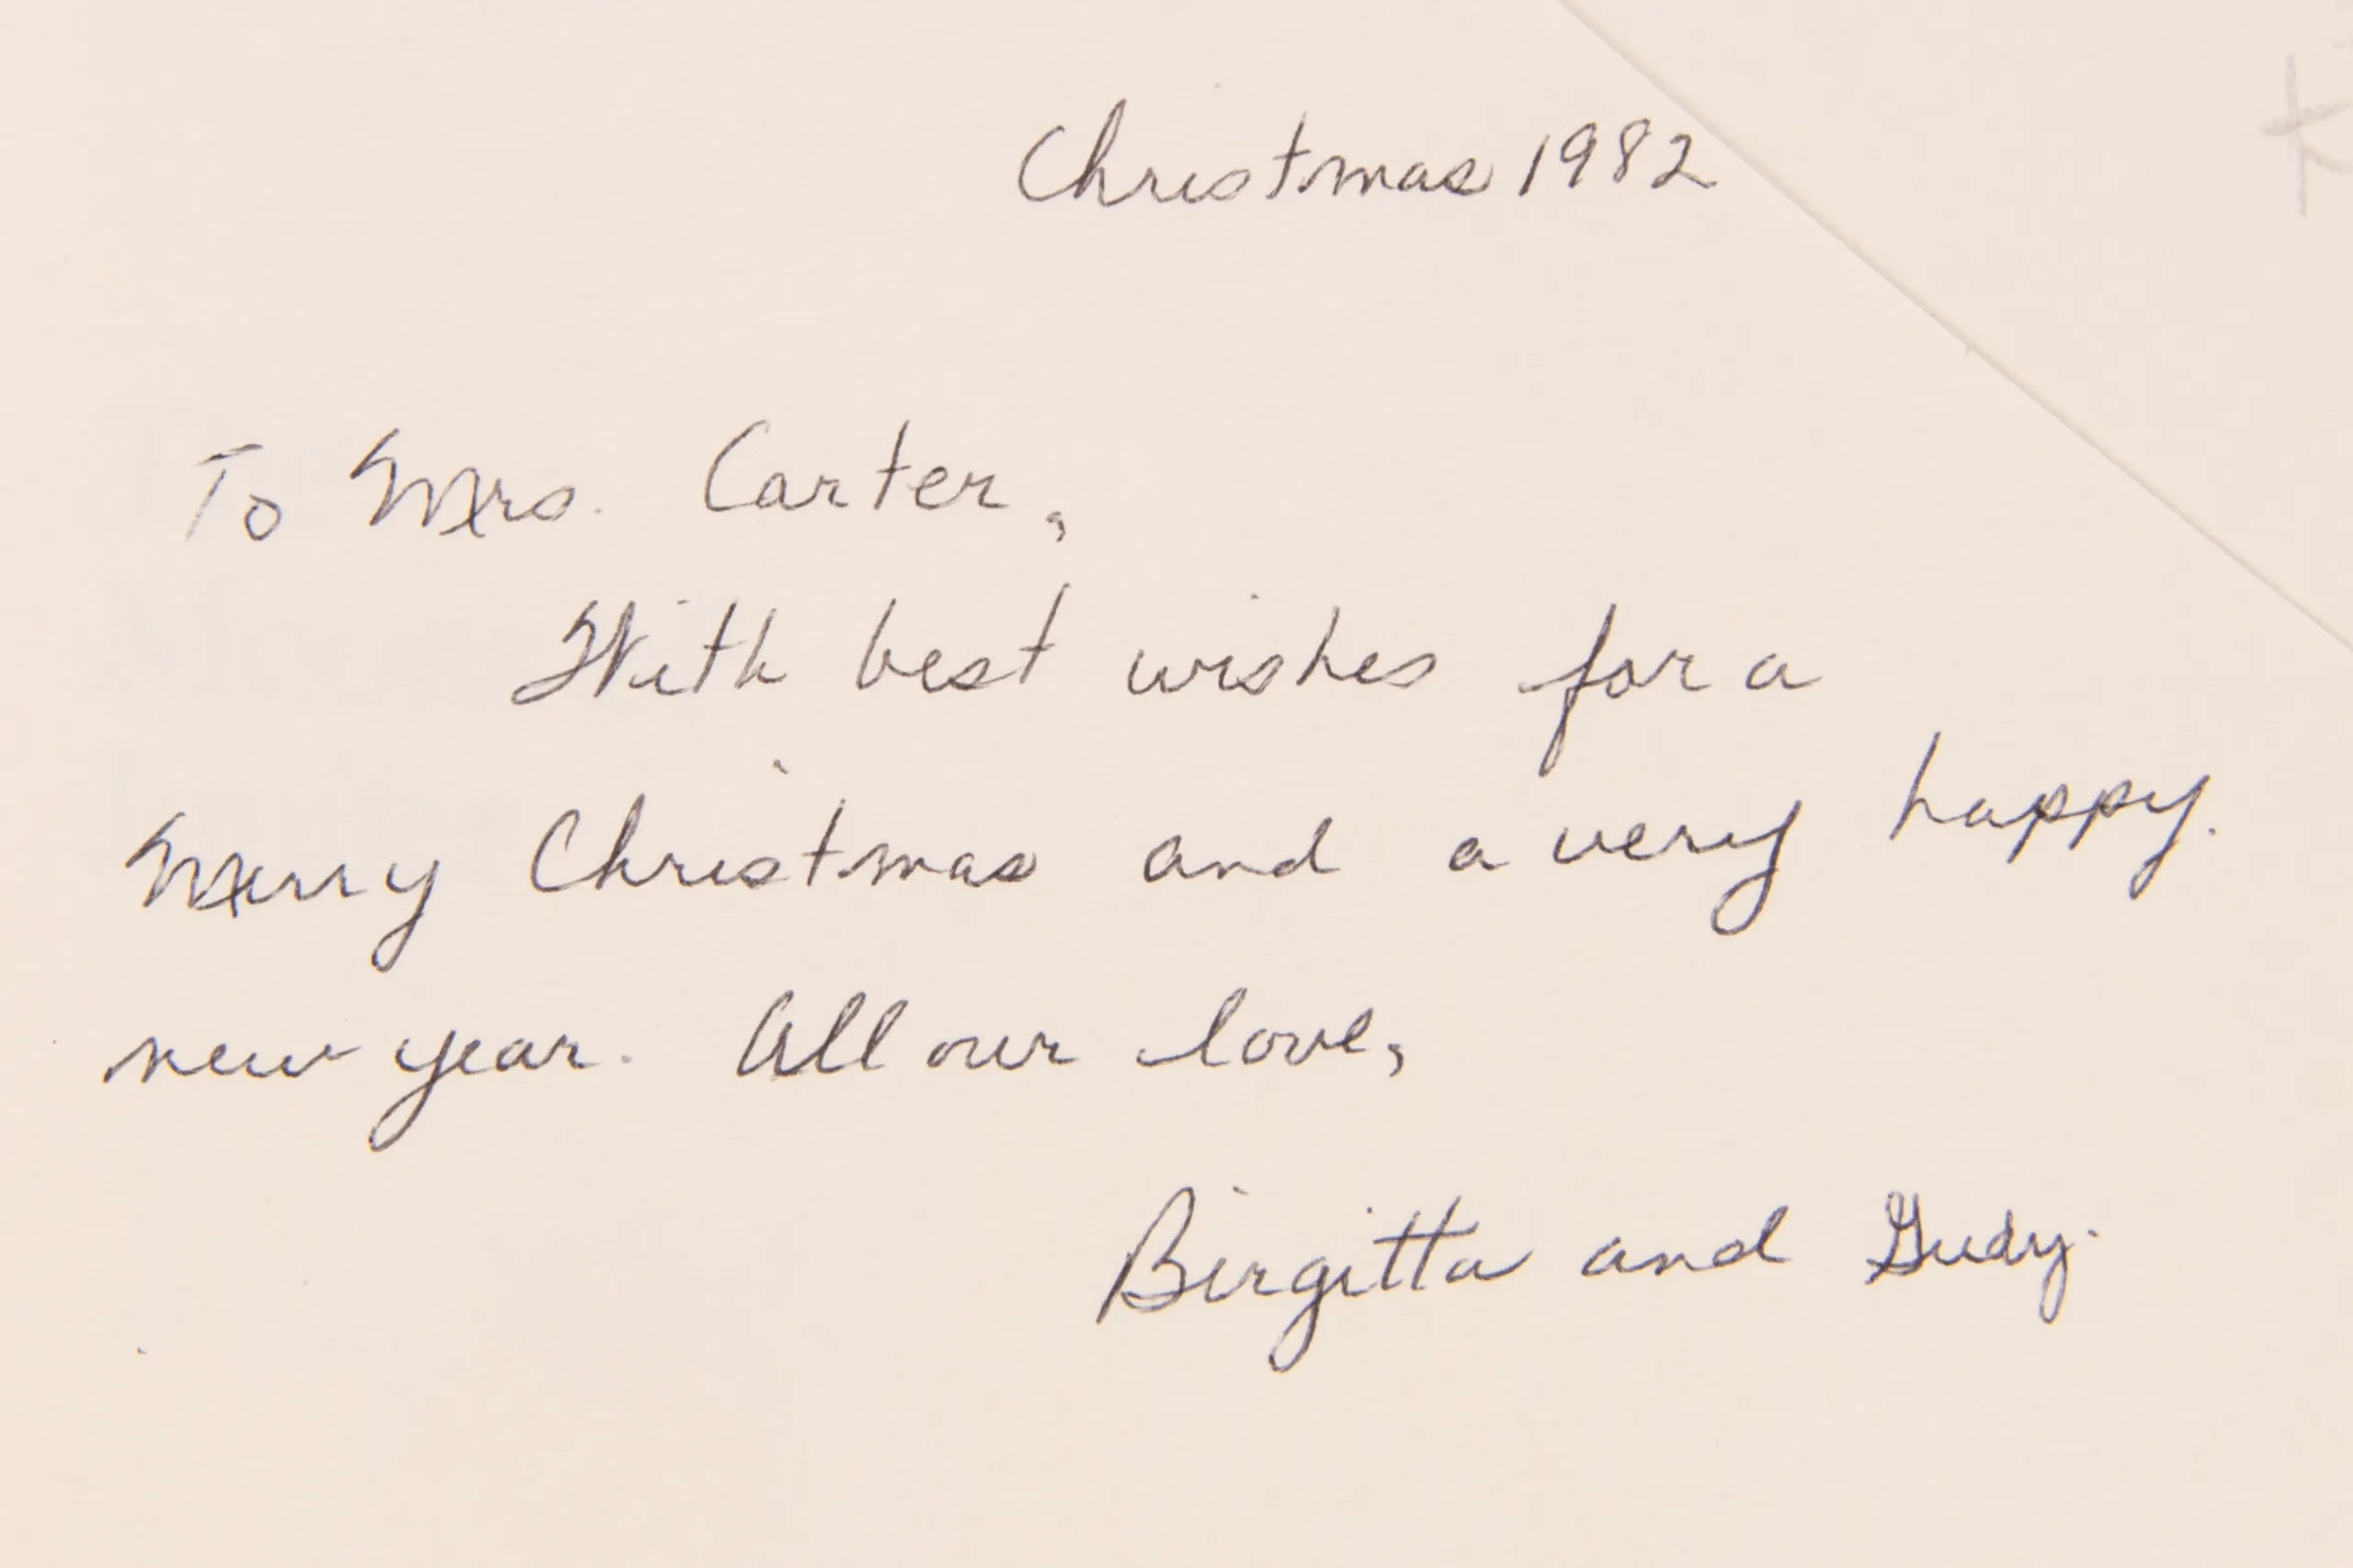 Christmas 1982
To Mrs. Carter,
With best wishes for a
Merry Christmas and a very happy.
new year. All our love,
Birgitta and Gudy.